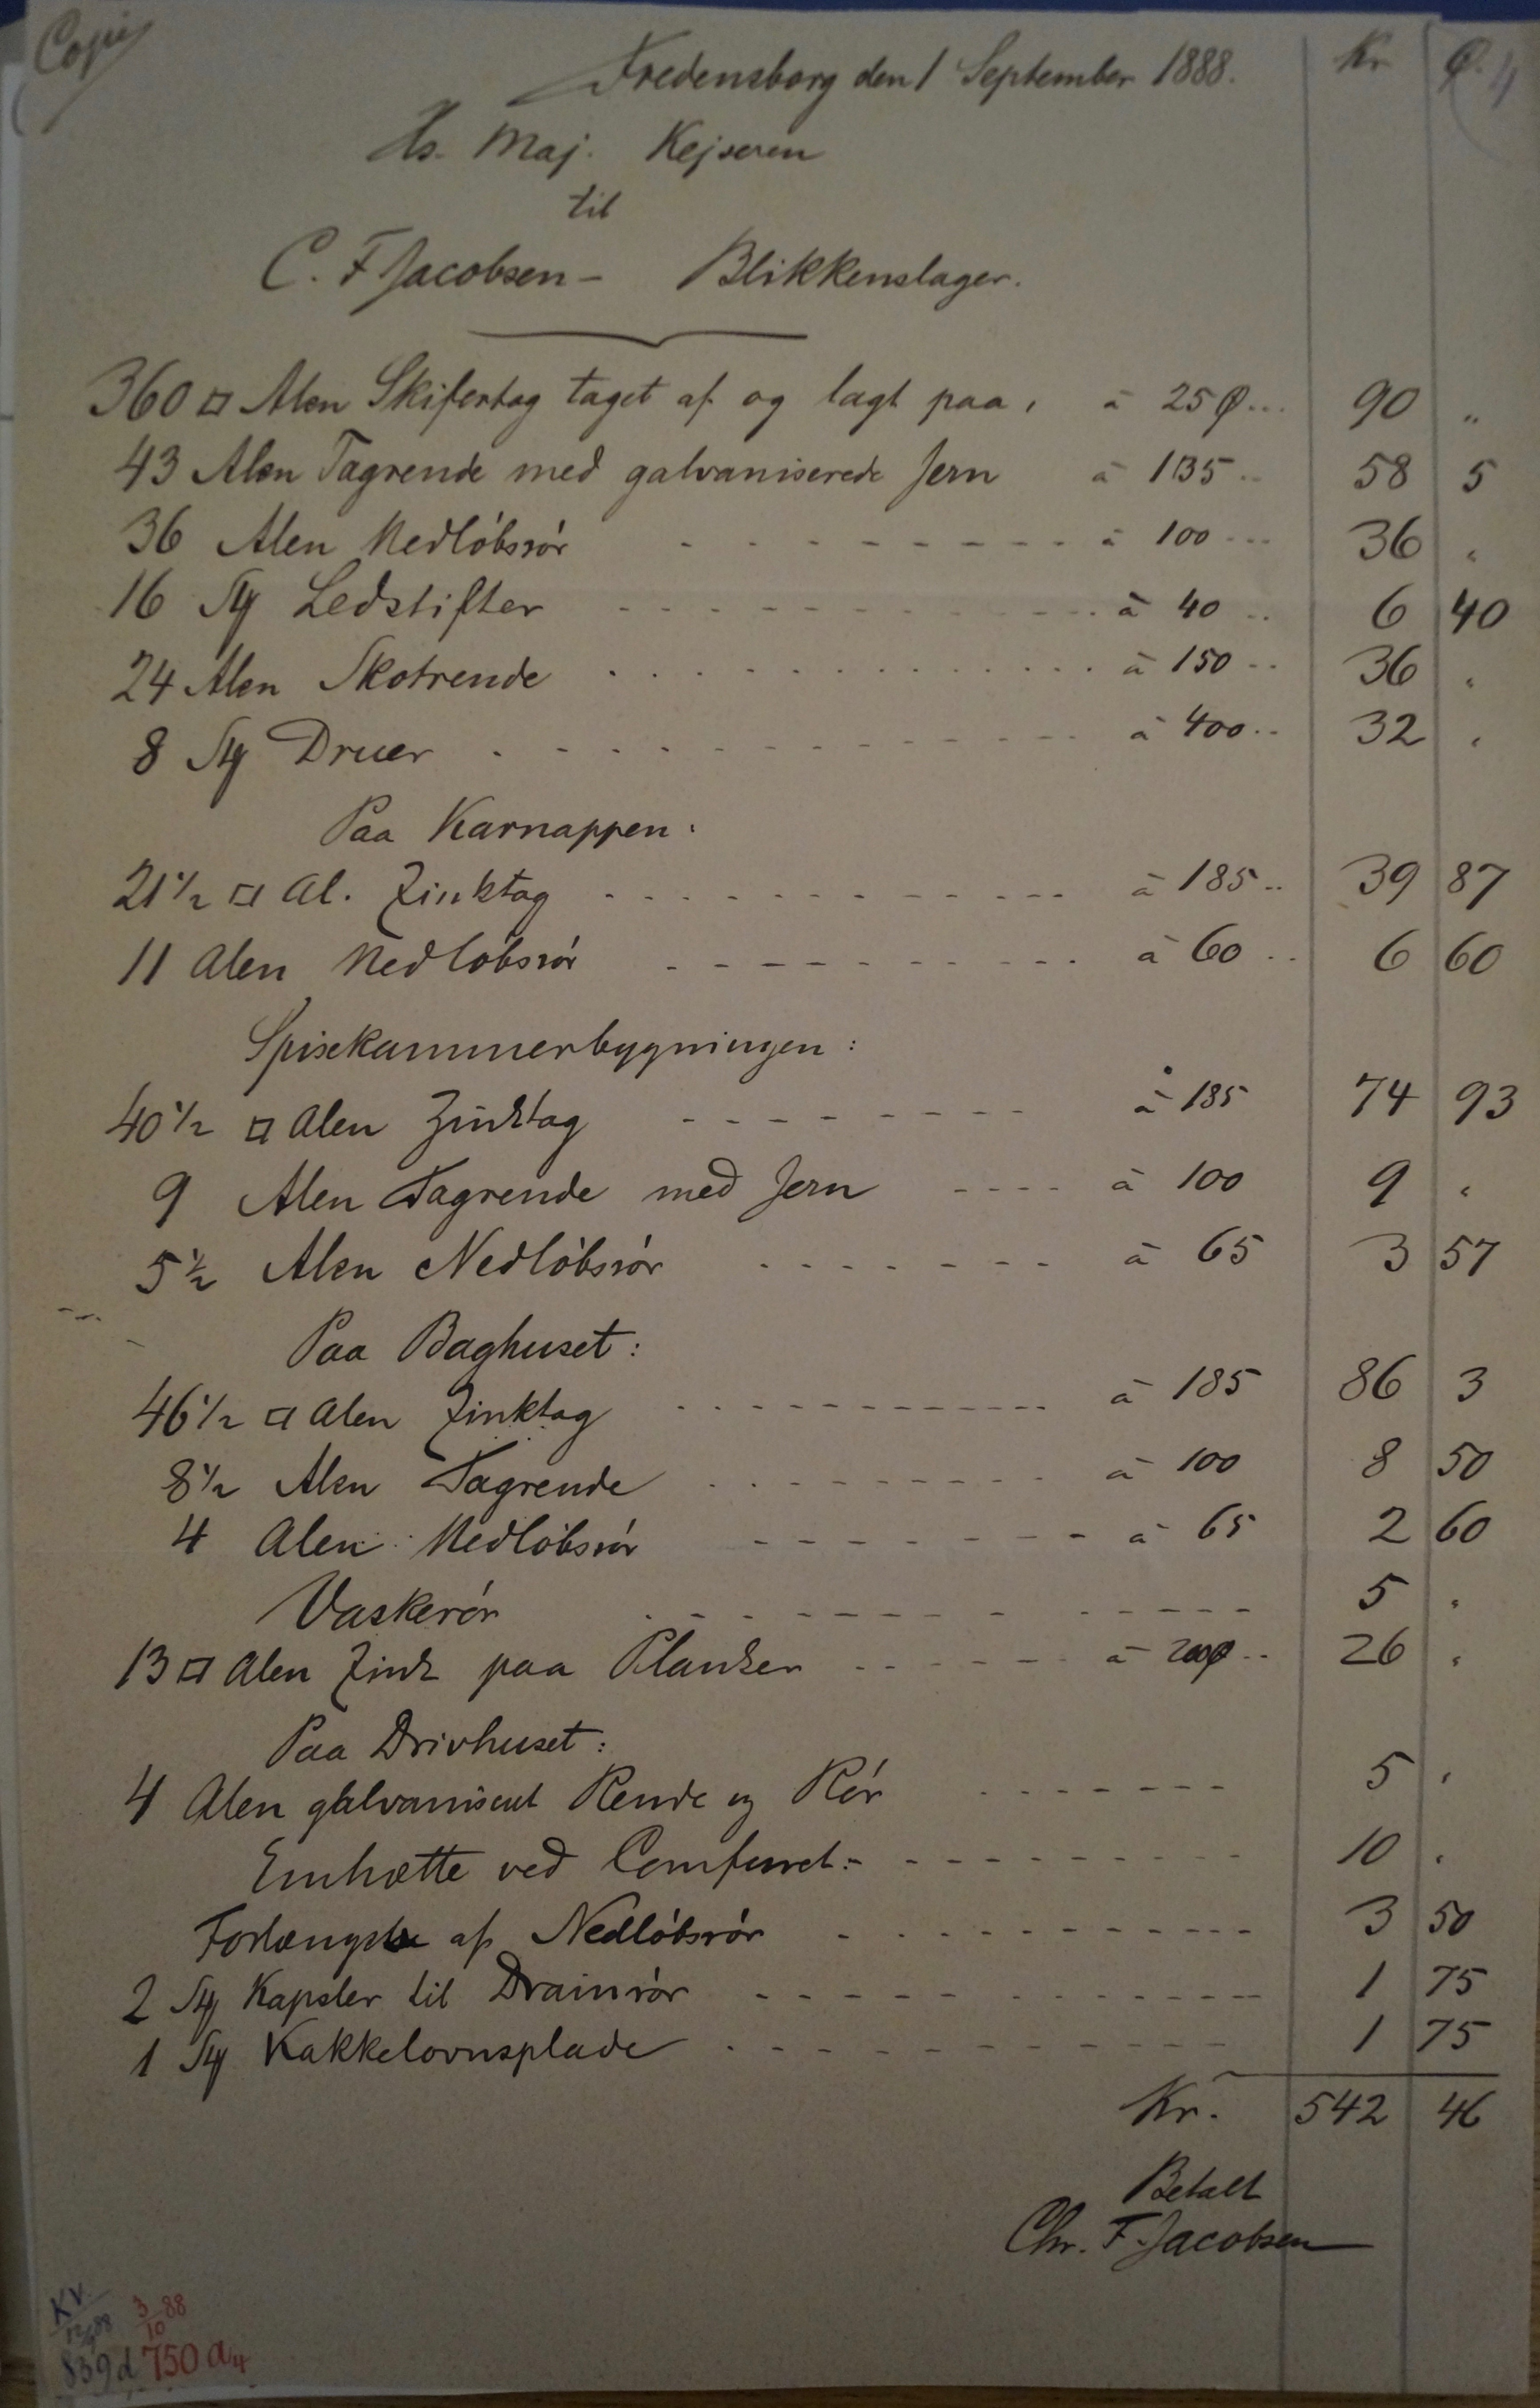 Copie
Fredensborg den 1 September 1888. Kr. Ø. 4
Hs. Maj. Kejseren
til
C. F Jacobsen - Blikkenslager.
360 □ Alen Skifertag taget af og lagt paa, à 25 Ø... 90 "
43 Alen Tagrende med galvaniserede Jern à 135.. 58 5
36 Alen Nedløbsrør à 100... 36 "
16 St Ledstifter à 40.. 6 40
24 Alen Skotrende à 150.. 36 "
8 St Druer à 400.. 32 "
Paa Karnappen:
21½ □ Al. Zinktag à 185.. 39 87
11 Alen Nedløbsrør à 60.. 6 60
Spisekammerbygningen:
40½ □ Alen Zinktag à 185 74 93
9 Alen Tagrende med Jern à 100 9 "
5½ Alen Nedløbsrør à 65 3 57
Paa Baghuset:
46½ □ Alen Zinktag à 185 86 3
8½ Alen Tagrende à 100 8 50
4 Alen Nedløbsrør à 65 2 60
Vaskerør 5 "
13 □ Alen Zink paa Planker à 200 Ø.. 26 "
Paa Drivhuset:
4 Alen galvaniseret Rende og Rør 5 "
Emhætte ved Comfuret:- 10 "
Forlængelse af Nedløbsrør 3 50
2 St Kapsler til Drainrør 1 75
1 St Kakkelovnsplade 1 75
Kr. 542 46
Betalt
Chr. F. Jacobsen
KV. 3/10 88
12/9 88
839d 750 a4